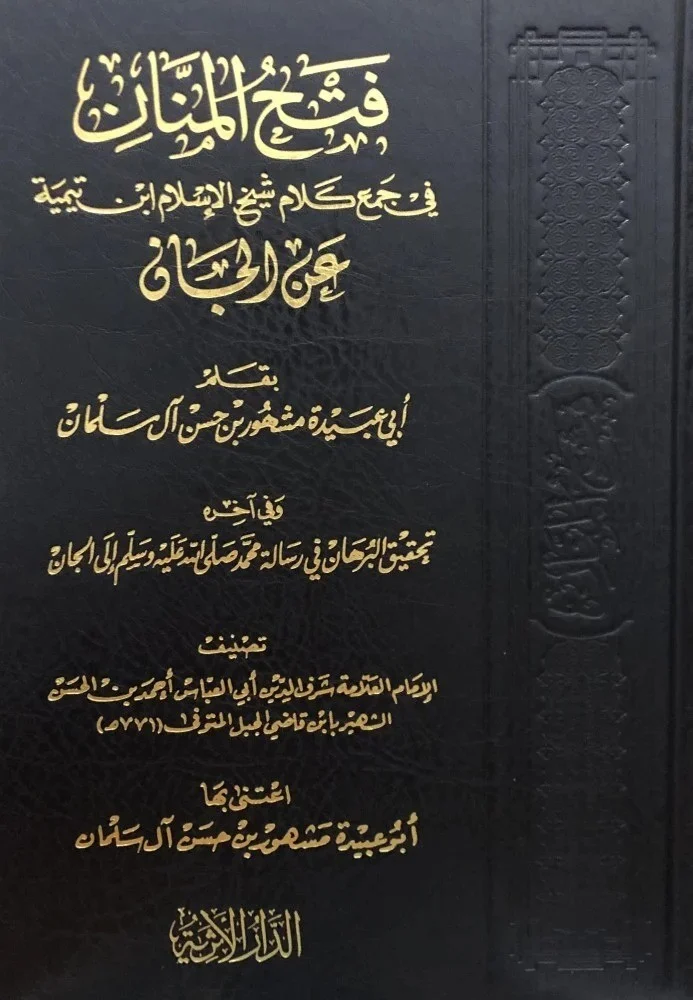 فَتْحُ المَنَّانِ
في جمع كلام شيخ الإسلام ابن تيمية
عَن الجان
بقلم
أبي عبيدة مشهور بن حسن آل سلمان
وفي آخره
تحقيق البرهان في رسالة محمد صلى الله عليه وسلم إلى الجان
تصنيف
الإمام العلامة شرف الدين أبي العباس أحمد بن الحسن
الشهير بابن قاضي الجبل المتوفى (٧٧١هـ)
اعتنى بها
أبو عبيدة مشهور بن حسن آل سلمان
الدار الأثرية